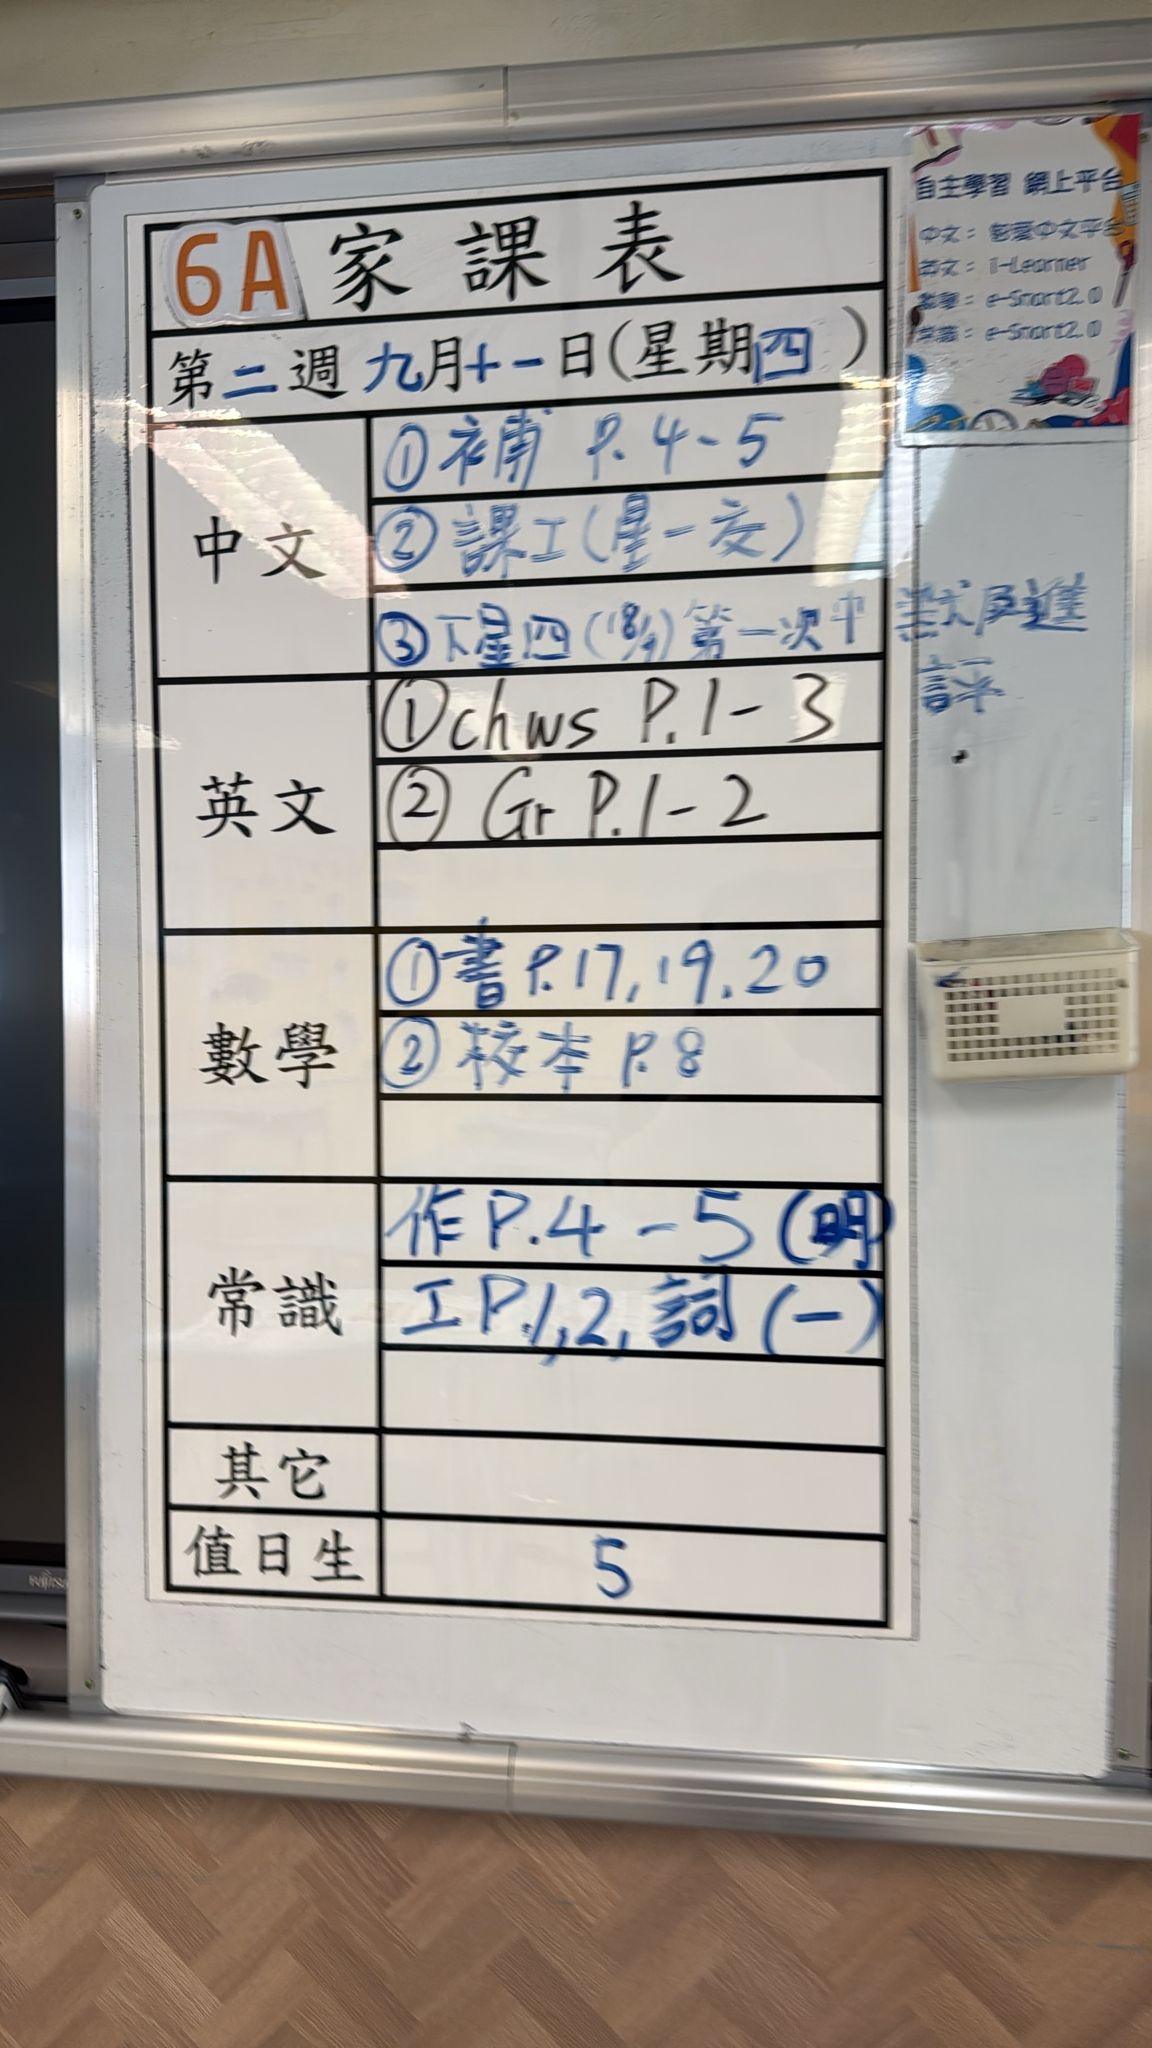 6A 家課表
第二週 九月十一日(星期四)
中文
①補 P.4-5
②課工(星一交)
③下星四(18/9)第一次中默與進
評
英文
①chws P.1-3
② Gr P.1-2
數學
①書 P.17,19,20
②校本 P.8
常識
作 P.4-5(明)
工 P.1,2,詞(一)
其它
值日生
5
自主學習 網上平台
中文: 中文平台
英文: i-Learner
數學: e-Smart2.0
常識: e-Smart2.0